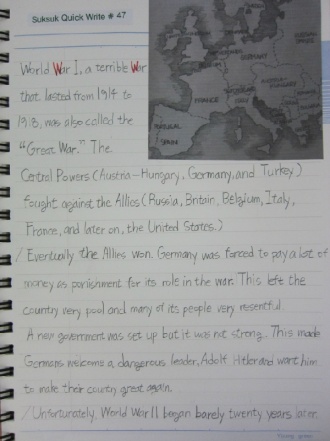 Suksuk Quick Write # 47
World War I, a terrible War
that lasted from 1914 to
1918, was also called the
"Great War." The
Central Powers (Austria-Hungary, Germany, and Turkey)
fought against the Allies (Russia, Britain, Belgium, Italy,
France, and later on, the United States.)
/ Eventually the Allies won. Germany was forced to pay a lot of
money as punishment for its role in the war. This left the
country very pool and many of its people very resentful.
A new government was set up but it was not strong. This made
Germans welcome a dangerous leader, Adolf Hitler and want him
to make their country great again.
/ Unfortunately, World War II began barely twenty years later.
GERMANY
FRANCE
AUSTRIA-HUNGARY
ITALY
PORTUGAL
SPAIN